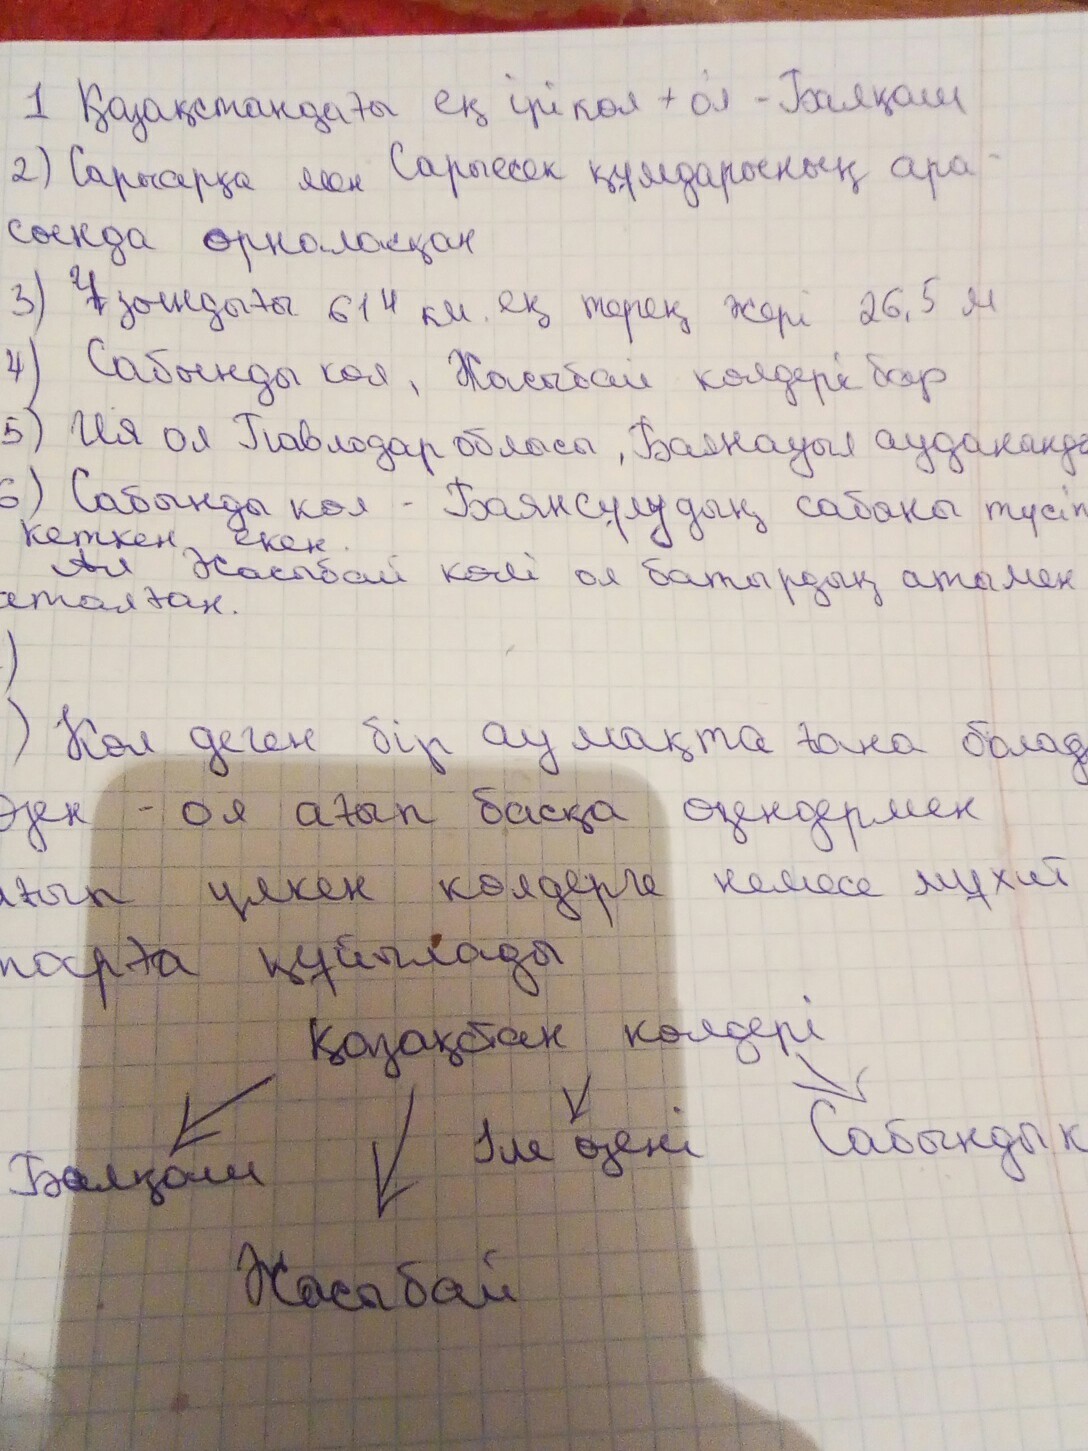 1 Қазақстандағы ең ірі көл + ол - Балқаш
2) Сарыарқа мен Сарыесек құмдарының ара-
сында орналасқан
3) Ұзындығы 614 км. ең терең жері 26,5 м
4) Сабынды көл, Жасыбай көлдері бар
5) Ия ол Павлодар облысы, Баянауыл ауданында
6) Сабынды көл - Баянсұлудың сабаны түсіп
кеткен екен.
Ал Жасыбай көлі ол батырдың атымен
аталған.
)
) Көл деген бір аумақта ғана болад
Өзен - ол ағып басқа өзендермен
ағып үлкен көлдерге немесе мұхит
тарға құйылады
Қазақстан көлдері
Балқаш
Іле өзені
Сабынды к
Жасыбай